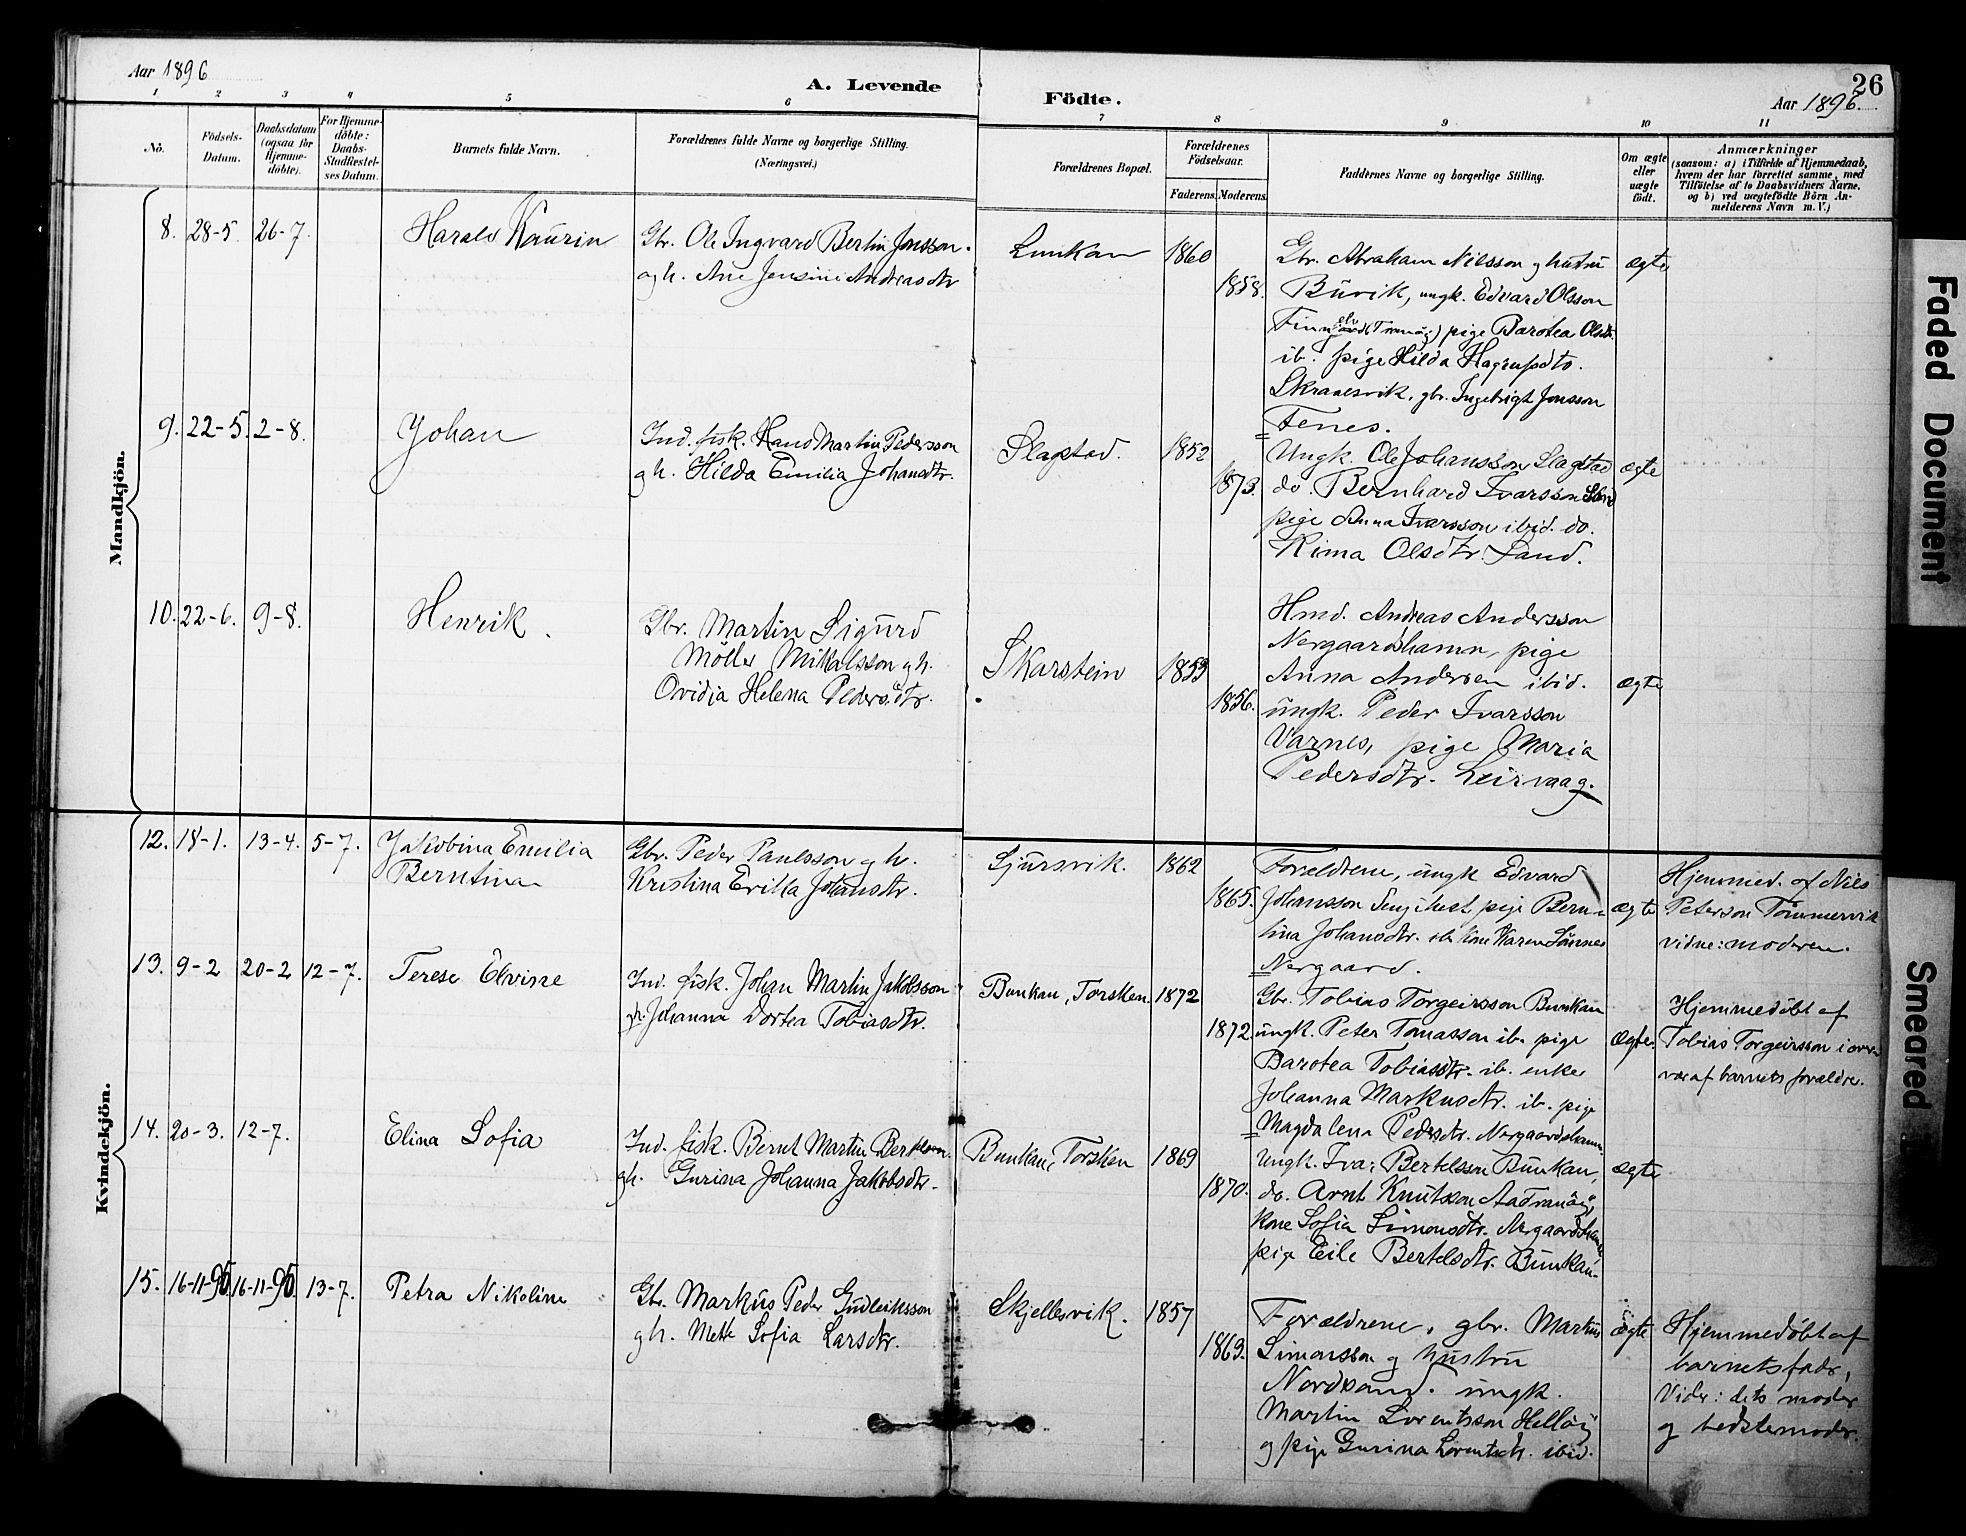 Aar 1896
A. Levende
Födte.
26
Aar 1896.
1 2 3 4 5 6 7 8 9 10 11
No.
Födsels-
Datum.
Daabsdatum
(ogsaa for
Hjemme-
döbte).
For Hjemme-
döbte:
Daabs-
Stadfæstel-
ses Datum.
Barnets fulde Navn.
Forældrenes fulde Navne og borgerlige Stilling.
(Næringsvei.)
Forældrenes Bopæl.
Forældrenes
Födselsaar.
Faderens. Moderens.
Faddernes Navne og borgerlige Stilling.
Om ægte
eller
uægte
födt.
Anmærkninger
(saasom: a) i Tilfælde af Hjemmedaab,
hvem der har forrettet samme, med
Tilföielse af to Daabsvidners Navne,
og b) ved uægtefödte Börn An-
melderens Navn m. V.)
Mandkjön.
8. 28-5. 26-7.
Harald Kaurin
Gbr. Ole Ingvard Bertin Jonsson
og h. Ane Jensine Andreasdtr
Lunkan 1860
1858.
Gbr. Abraham Nilsson og hustru
Buvik, ungk. Edvard Olsson
pige Barotea Olsdtr.
ib. pige Hilda
gbr. Ingebrigt Jonsson
Fenes.
ægte
9. 22-5. 2-8.
Johan
Ind. fisk. Hans Martin Pedersson
og h. Hilda Emilia Johansdtr.
Slagstad. 1852
1873.
Ungk. Ole Johansson Slagstad
do. Bernhard Ivarsson
pige Anna Ivarsson ibid. do.
Rima Olsdtr. Sand.
ægte
10. 22-6. 9-8.
Henrik.
Gbr. Martin Sigurd
Möller Mikalsson og h.
Ovidia Helena Pedersdtr.
Skarstein 1859
1856.
Hmd. Andreas Andersson
Nergaardshamn, pige
Anna Andersen ibid.
ungk. Peder Ivarsson
Varnes, pige Maria
Pedersdtr. Leirvaag.
ægte
Kvindekjön.
12. 18-1. 13-4. 5-7.
Jakobina Emilia
Berntina
Gbr. Peder Paulsson og h.
Kristina Erikka Johansdtr.
Sjursvik. 1862
1865.
Forældrene, ungk Edvard
Johansson pige Bern-
tina Johansdtr. ib. kone Karen
Nergaard.
ægte
Hjemmed. af Nils
Peterson Tömmervik
vidne: moderen.
13. 9-2 20-2 12-7.
Terese Elvine
Ind. fisk. Johan Martin Jakobsson
gh. Johanna Dortea Tobiasdtr.
Bunkan, Torsken. 1872
1872.
Gbr. Tobias Torgeirsson Bunkan
ungk. Peter Tomasson ib. pige
Barotea Tobiasdtr. ib. enke
Johanna Markusdtr. ib. pige
Magdalena Pedersdtr. Nergaardshamn.
ægte.
Hjemmedöbt af
Tobias Torgeirsson i over-
vær af barnets forældre.
14. 20-3. 12-7.
Elina Sofia
Ind. fisk. Bernt Martin Bertelsen
gh. Gurina Johanna Jakobsdtr.
Bunkan, Torsken 1869
1870.
Ungk. Ivar Bertelssen Bunkan,
do. Arnt Knutson
kone Sofia Simonsdtr. Nergaardshamn
pige Eile Bertelsdtr. Bunkan.
ægte
15. 16-11-95. 16-11-95. 13-7.
Petra Nikoline
Gbr. Markus Peder Gudleiksson
gh. Mette Sofia Larsdtr.
Skjellesvik. 1857
1863.
Forældrene, gbr. Markus
Simonsson og hustru
Nordsand. ungk.
Martin Lorentsson
og pige Gurina Lorentsdtr. ibid.
ægte
Hjemmedöbt af
barnets fader,
Vidr: dets moder
og bedstemoder.
Faded Document
Smeared